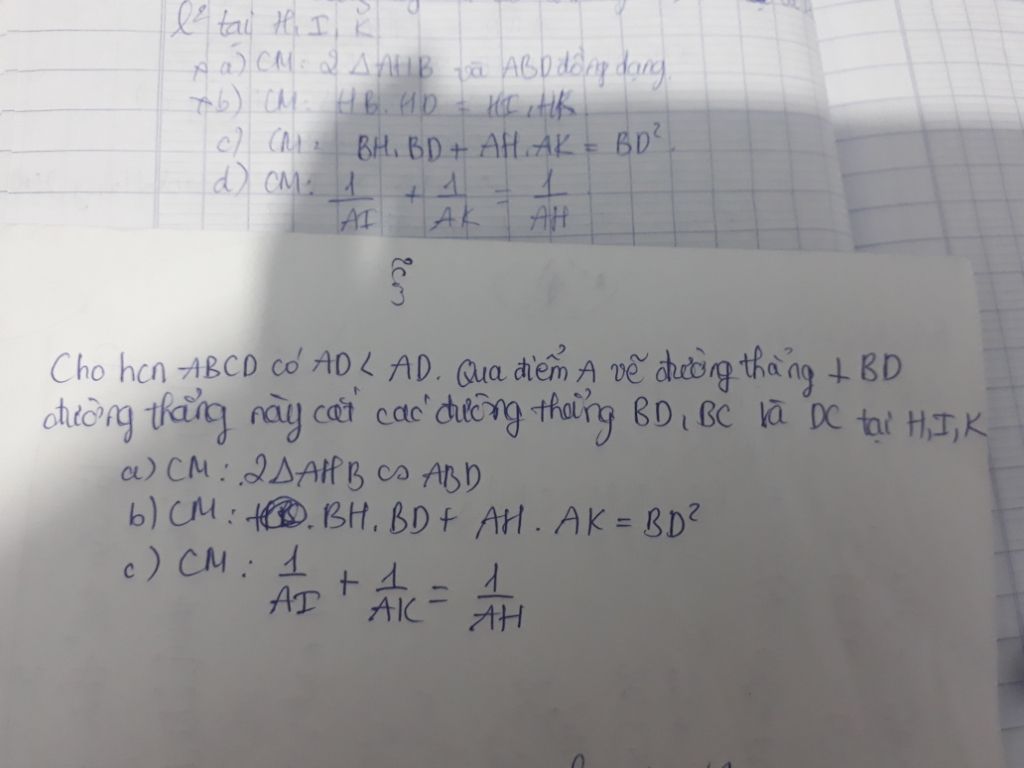 lº tại H, I, K
a) CM: 2 ΔAHB và ABD đồng dạng.
b) CM: HB.HD = HI.HK
c) CM: BH.BD + AH.AK = BD².
d) CM: 1/AI + 1/AK = 1/AH
Cho hcn ABCD có AD < AD. Qua điểm A vẽ đường thẳng ⊥ BD
đường thẳng này cắt các đường thẳng BD, BC và DC tại H, I, K
a) CM: 2ΔAHB ∽ ABD
b) CM: BH.BD + AH.AK = BD²
c) CM: 1/AI + 1/AK = 1/AH